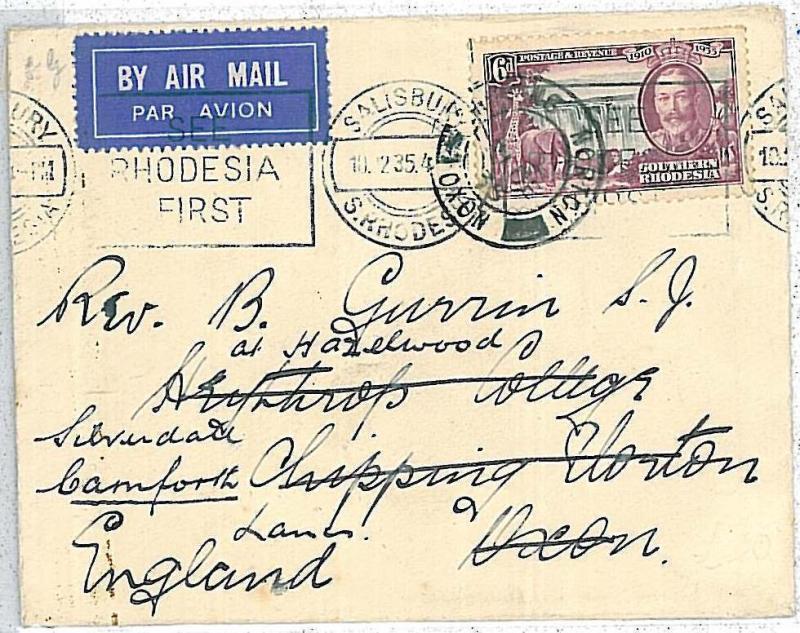 BY AIR MAIL
PAR AVION
6d
POSTAGE & REVENUE
1910 1935
SOUTHERN
RHODESIA
SEE
RHODESIA
FIRST
SALISBURY
10. 12 35. 4
S. RHODES
NORTON
OXON
Rev. B. Gurrin S.J.
at Hazelwood
Heythrop College
Silverdale
Carnforth Chipping Norton
Lancs. Oxon.
England